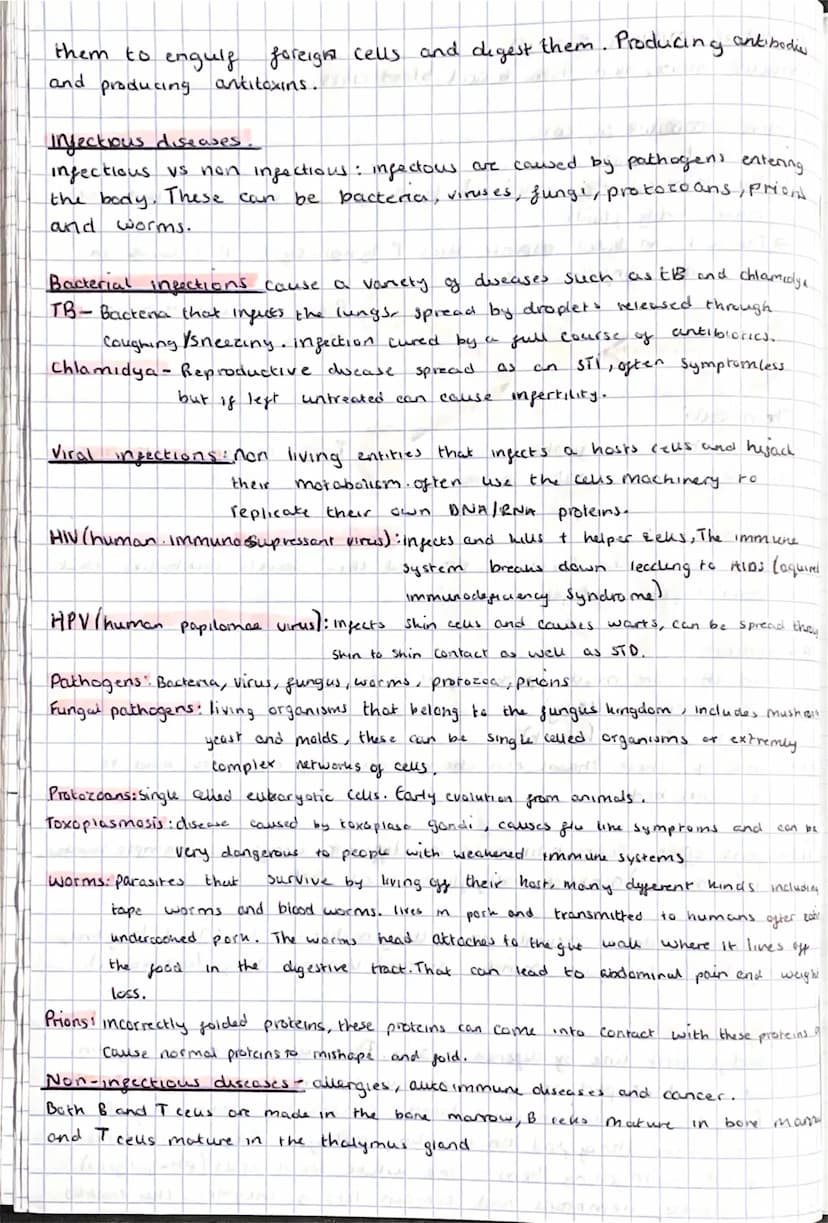 them to engulf foreign cells and digest them. Producing antibodies
and producing antitoxins.
Infectious diseases.
infectious vs non infectious: infectous are caused by pathogens entering
the body. These can be bacteria, viruses, fungi, protozoans, prions
and worms.
Bacterial infections cause a variety of diseases such as TB and chlamidya
TB - Bacteria that infects the lungs, spread by droplets released through
coughing/sneezing. infection cured by a full course of antibiotics.
Chlamidya - Reproductive disease spread as an STI, often symptomless
but if left untreated can cause infertility.
Viral infections: non living entities that infects a hosts cells and hijack
their motabolism. often use the cells machinery to
replicate their own DNA/RNA proteins.
HIV (human immunosupressant virus): infects and kills t helper cells, The immune
system breaks down leading to AIDS (aquired
immunodeficiency syndrome)
HPV (human papilomae virus): infects skin cells and causes warts, can be spread
skin to skin contact as well as STD.
Pathogens: Bacteria, virus, fungus, worms, protozoa, prions
Fungal pathogens: living organisms that belong to the fungus kingdom, includes
yeast and molds, these can be single celled organisms or extremly
complex networks of cells.
Protozoans: single celled eukaryotic cells. Early evolution from animals.
Toxoplasmosis: disease caused by toxoplase gondi, causes flu like symptoms and can be
very dangerous to people with weakened immune systems
Worms: parasites that survive by living off their host, many different kinds including
tape worms and blood worms. lives in pork and transmitted to humans after
undercooked pork. The worms head attaches to the gut wall where it lives off
the food in the digestive tract. That can lead to abdominal pain and weight
loss.
Prions: incorrectly folded proteins, these proteins can come into contact with these proteins
cause normal proteins to mishape and fold.
Non-infectious diseases - allergies, auto immune diseases and cancer.
Both B and T cells are made in the bone marrow, B cells mature in bone marrow
and T cells mature in the thalymus gland